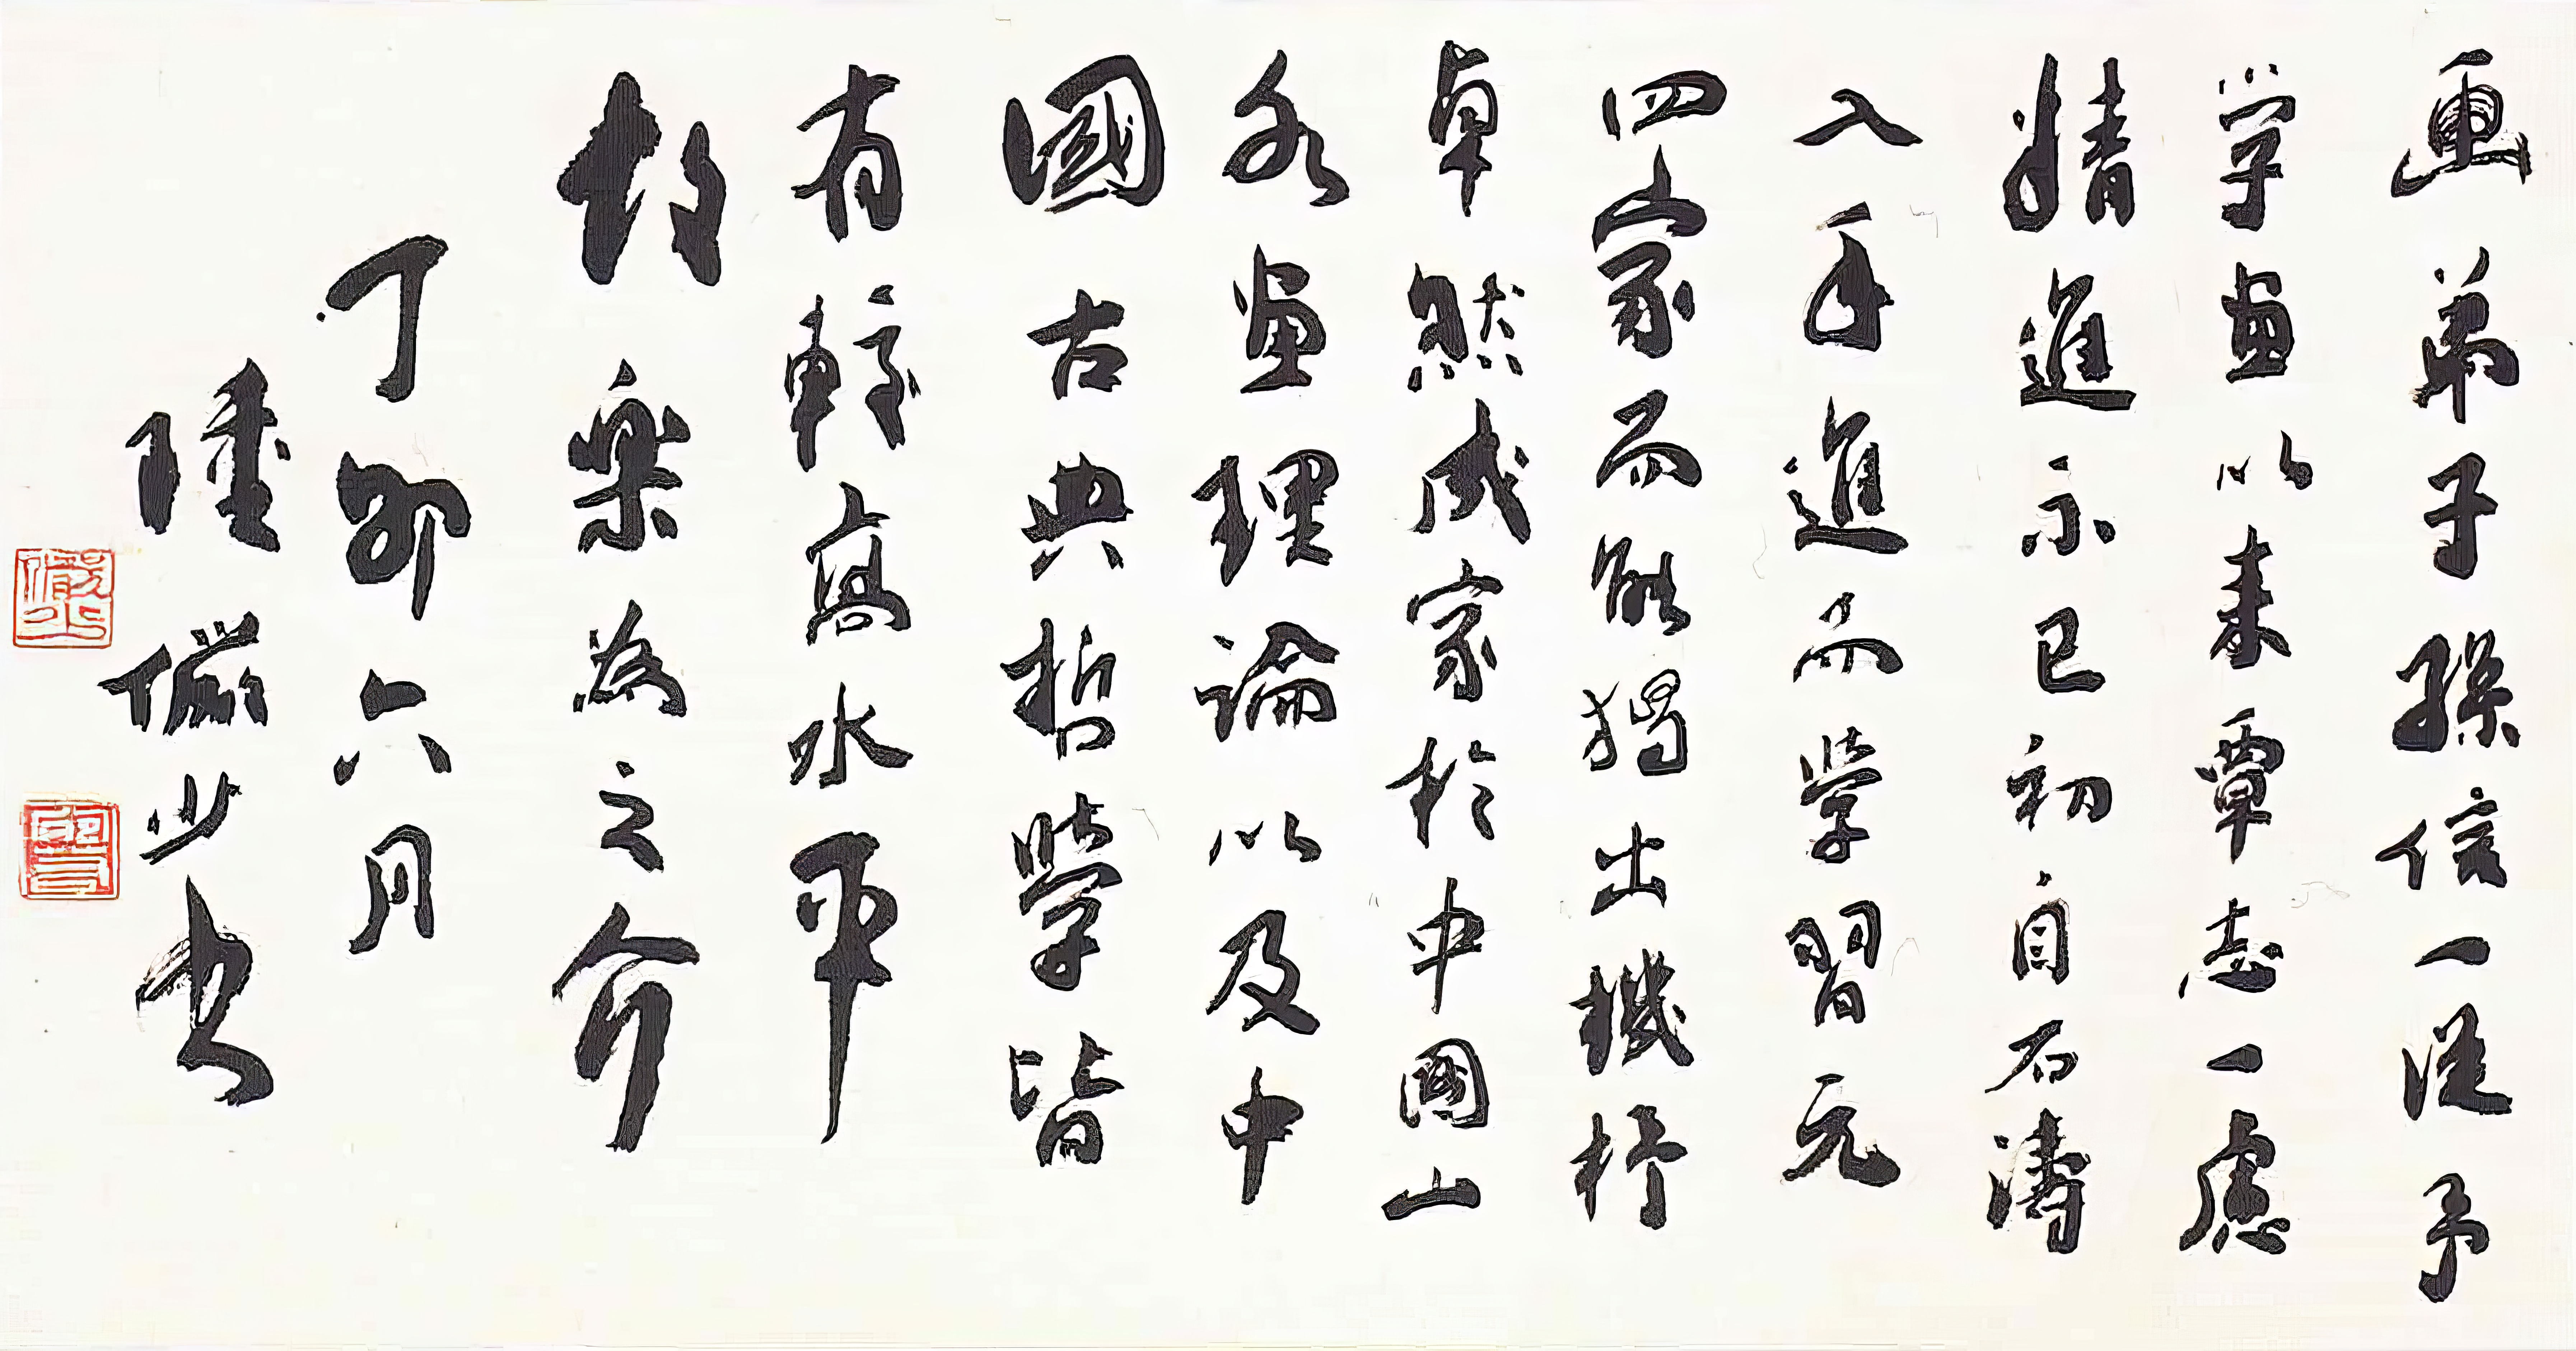 画弟子孫信一從予
学畫以来覃志一慮
精進不已初自石濤
入手進而學習元
四家而能獨出機杼
卓然成家於中國山
水畫理論以及中
國古典哲學皆
有較高水平
故樂為之介
丁卯六月
陸儼少书
儼少